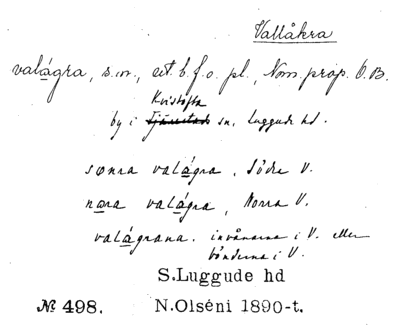 Vallåkra
valágra, s.m., utt. b. f. o. pl., Nom. prop. Ö.B.
Kristofta
by i sn, Luggude hd.
sönra valágra, Södra V.
næra valágra, Norra V.
valágrana. invånarna i V. eller
bönderna i V.
S.Luggude hd
№ 498. N.Olséni 1890-t.